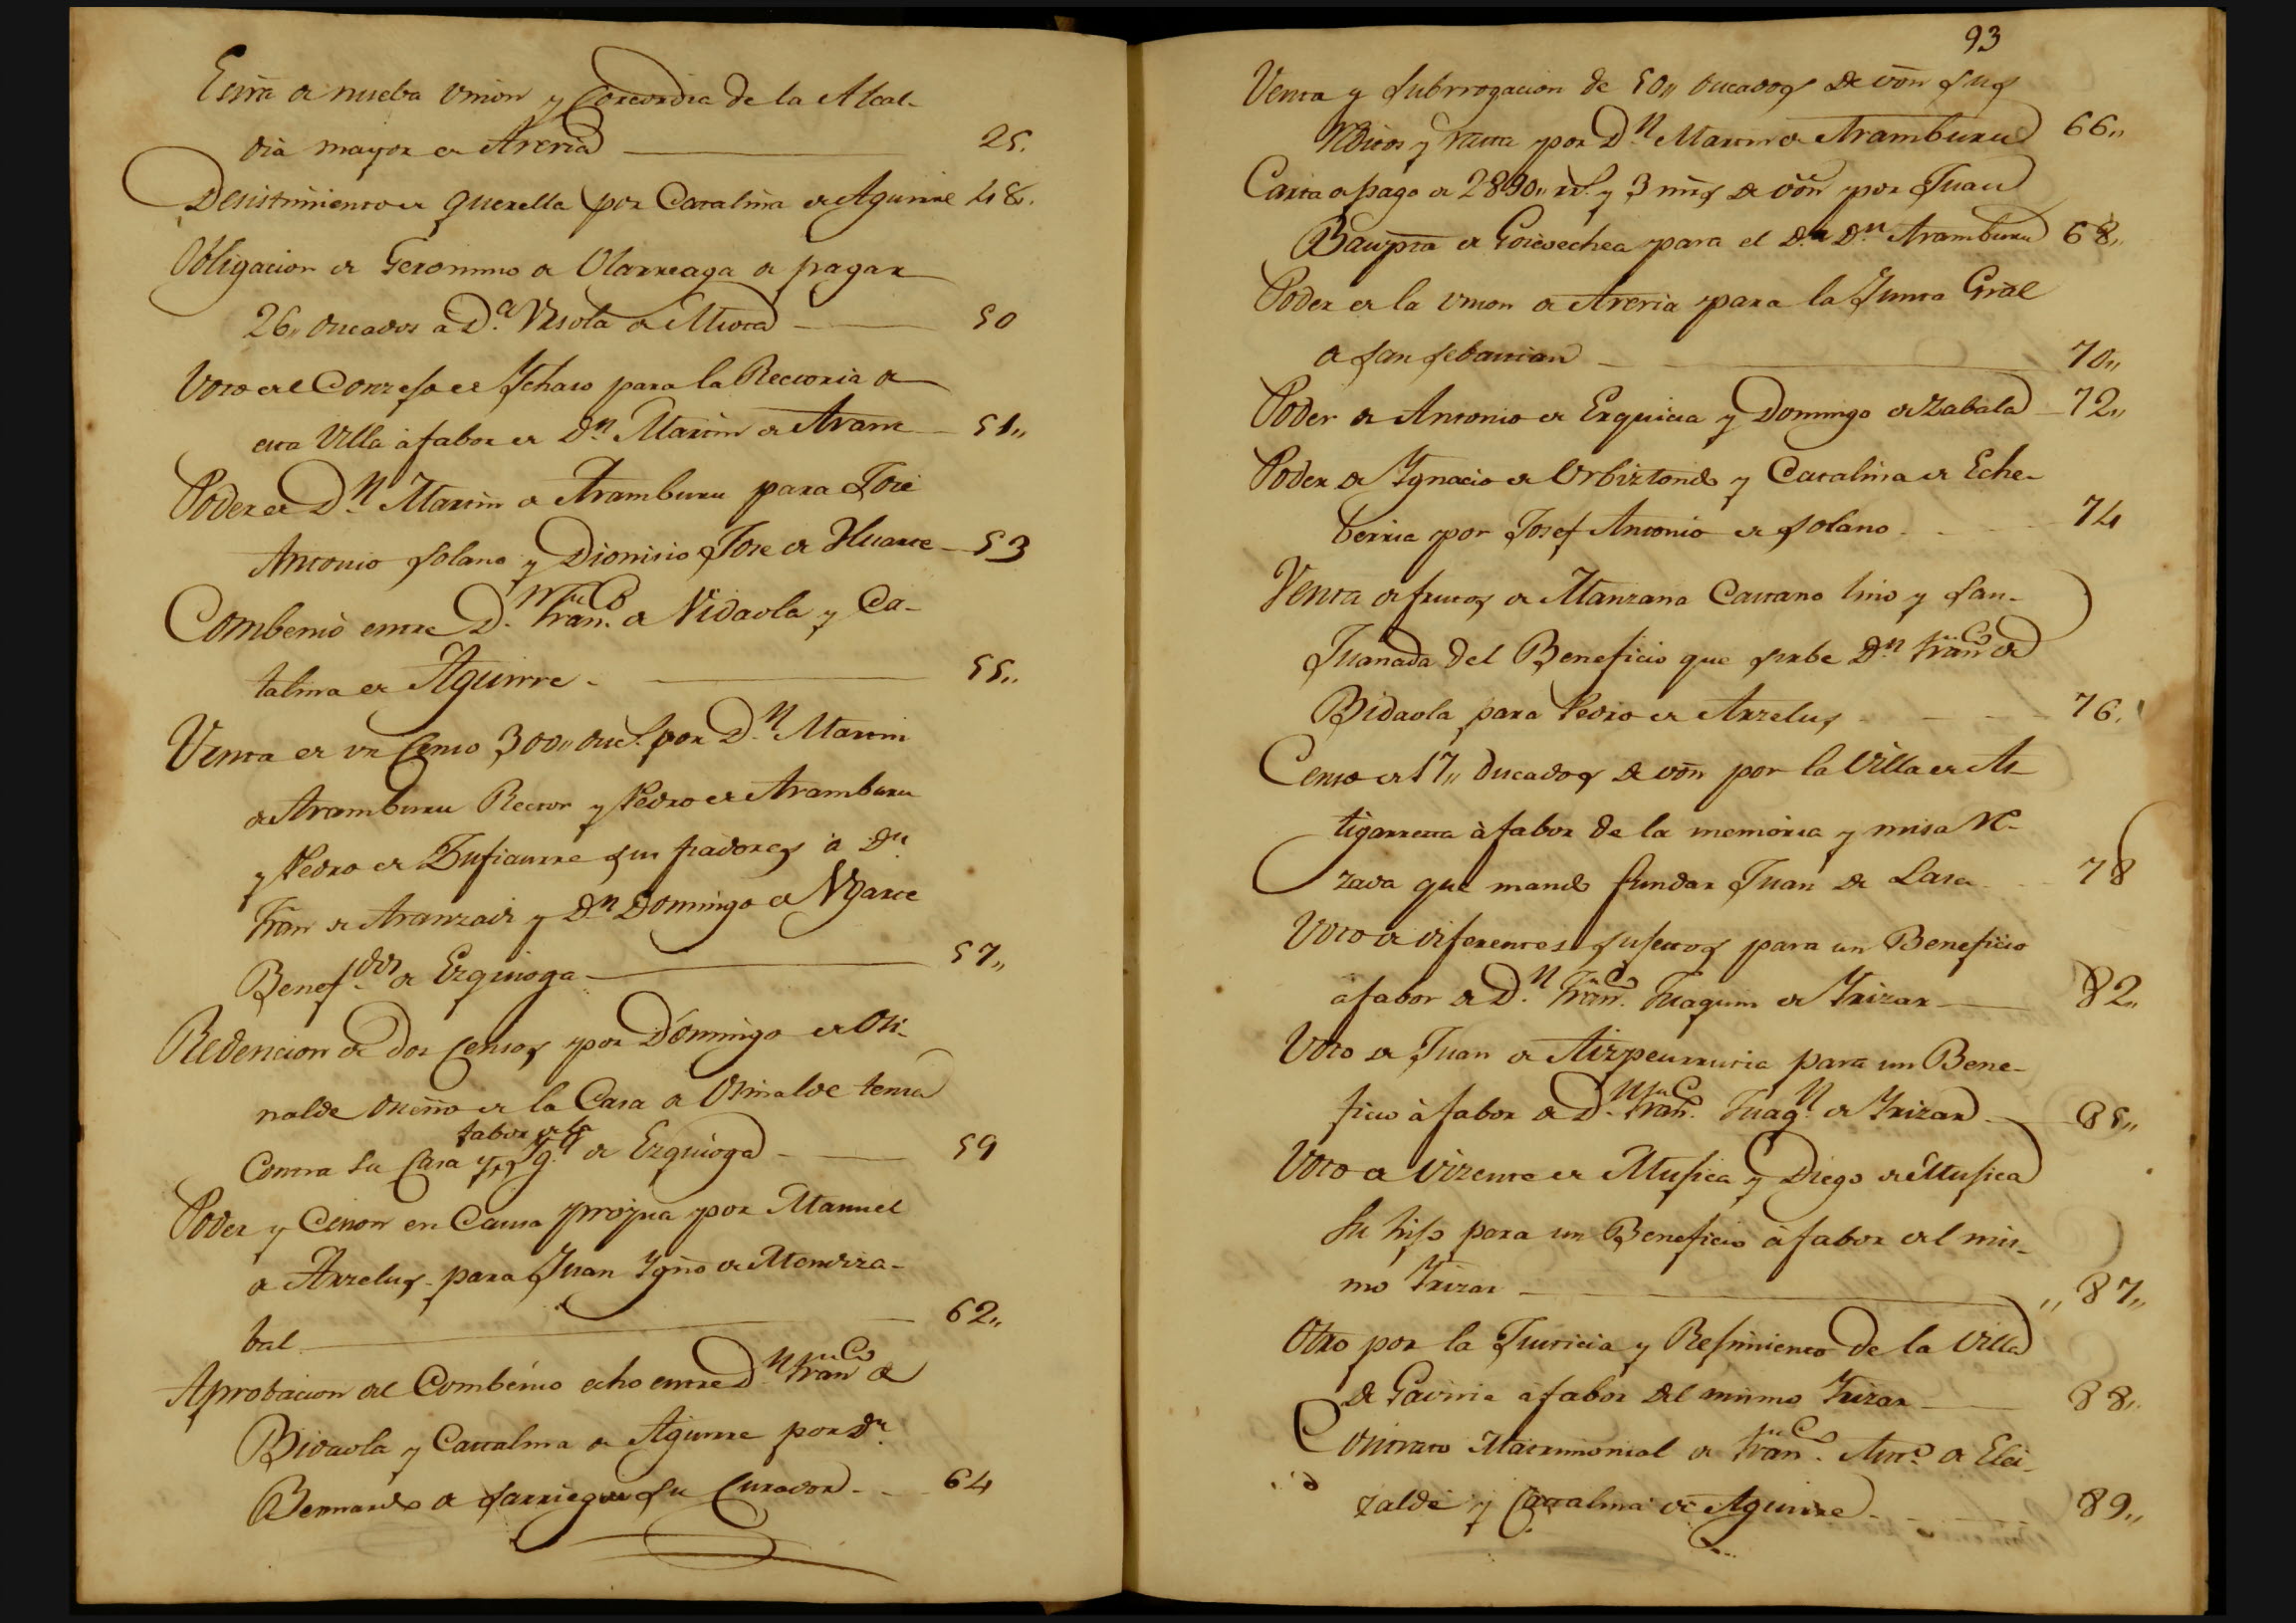 Escrra de nueba Union y Concordia de la Alcal-
dia mayor de Areria 25.
Desistimiento de querella por Catalina de Aguirre 48.
Obligacion de Geronimo de Olarreaga de pagar
26,, ducados a D.ª Ursola de Atiora 50
Voto del Conzejo de Ichaso para la Rectoria de
esta Villa à fabor de Dn Martin de Aram 51,,
Poder de D.n Martin de Aramburu para Jose
Antonio Solano y Dionisio Jose de Huarte 53
Combenio entre D.n Fran.co de Vidaola y Ca-
talina de Aguirre 55,,
Venta de un Censo 300,, duc.s por D.n Martin
de Aramburu Rector y Pedro de Aramburu
y Pedro de sus fiadores à Dn
Fran de Aranzadi y Dn Domingo de Ugarte
Benef.dos de Ezquioga 57,,
Redencion de dos Censos por Domingo de Osi-
nalde dueño de la Casa de Osinalde tenia
fabor de la
Contra su Casa y Yg.a de Ezquioga 59
Poder y Cesion en Causa propia por Manuel
de Arzelus para Juan Ygno de Mendiza-
bal 62,,
Aprobacion del Combenio echo entre D.n Franco de
Bidaola y Catalina de Aguirre por Dn
Bernardo de Sarriegui su Curador 64
93
Venta y Subrrogacion de 50,, ducados de von sus
Reditos y rata por D.n Martin de Aramburu 66,,
Carta de pago de 2890,, rs. y 3 mrs de von por Juan
Baupta de Goicoechea para el d.n Dn Aramburu 68,,
Poder de la Union de Areria para la Junta Gral
de San Sebastian 70,,
Poder de Antonio de Ezquiaa y Domingo de Zabala 72,,
Poder de Ygnacio de Urbiztondo y Catalina de Eche-
berria por Josef Antonio de Solano 74
Venta de frutos de Manzana Castano lino y San-
Juanada del Beneficio que sirbe Dn Franco de
Bidaola para Pedro de Arzelus 76.
Censo de 17,, ducados de von por la Villa de As-
tigarreta à fabor de la memoria y misa re-
zada que mando fundar Juan de Lasa 78
Voto de diferentes sujetos para un Beneficio
à fabor de D.n Fran.co Juaquin de Yrizar 82,,
Voto de Juan de Aizpeurrutia para un Bene-
ficio à fabor de D.n Fran.co Juaq.n de Yrizar 85,,
Voto de Vizente de Mujica y Diego de Mujica
su hijo para un Beneficio à fabor del mis-
mo Yrizar ,, 87,,
Otro por la Justicia y Rejimiento de la Villa
de Gaviria à fabor del mismo Yrizar 88,,
Contrato Matrimonial de Fran.co Anto de Elei-
zalde y Catalina de Aguirre 89,,